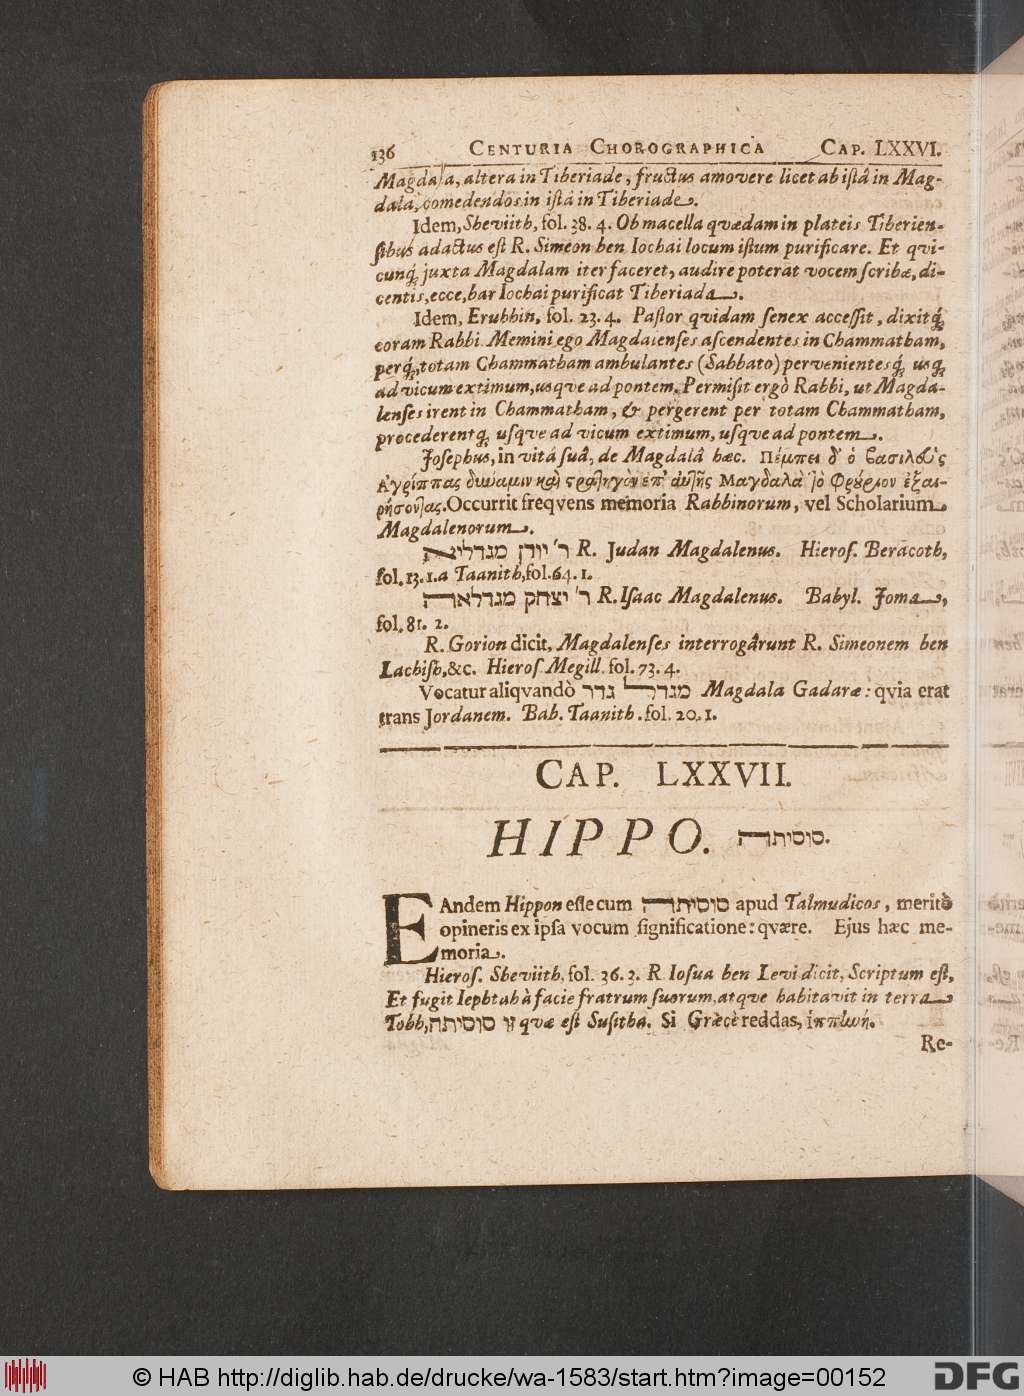 136 CENTURIA CHOROGRAPHICA CAP. LXXVI.
Magdala, altera in Tiberiade, fructus amovere licet ab istâ in Mag-
dala, comedendos in istâ in Tiberiade.
Idem, Sheviith, fol. 38. 4. Ob macella qvædam in plateis Tiberien-
sibus adactus est R. Simeon ben Iochai locum istum purificare. Et qvi-
cunq; juxta Magdalam iter faceret, audire poterat vocem scribæ, di-
centis, ecce, bar Iochai purificat Tiberiada.
Idem, Erubhin, fol. 23. 4. Pastor qvidam senex accessit, dixitq;
coram Rabbi. Memini ego Magdalenses ascendentes in Chammatham,
perq;, totam Chammatham ambulantes (Sabbato) pervenientesq; usq;
ad vicum extimum, usqve ad pontem. Permisit ergò Rabbi, ut Magda-
lenses irent in Chammatham, & pergerent per totam Chammatham,
procederentq; usqve ad vicum extimum, usqve ad pontem.
Josephus, in vitâ suâ, de Magdalâ hæc. Πέμπει δ' ὁ βασιλεὺς
Ἀγρίππας δύναμιν καὶ στρατηγὸν ἐπ' αὐτῆς Μαγδαλὰ τὸ Φρύριον ἐξαι-
ρήσοντας. Occurrit freqvens memoria Rabbinorum, vel Scholarium
Magdalenorum.
ר' יודן מגדליאה R. Judan Magdalenus. Hieros. Beracoth,
fol. 13. 1. a Taanith, fol. 64. 1.
ר' יצחק מגדלאה R. Isaac Magdalenus. Babyl. Joma,
fol. 81. 2.
R. Gorion dicit, Magdalenses interrogârunt R. Simeonem ben
Lachish, &c. Hieros Megill. fol. 73. 4.
Vocatur aliqvandò מגדל גדר Magdala Gadaræ: qvia erat
trans Jordanem. Bab. Taanith. fol. 20. 1.
CAP. LXXVII.
HIPPO. סוסיתה.
EAndem Hippon esse cum סוסיתה apud Talmudicos, meritò
opineris ex ipsa vocum significatione: qvære. Ejus hæc me-
moria.
Hieros. Sheviith, fol. 36. 3. R Iosua ben Levi dicit, Scriptum est,
Et fugit Iephtah à facie fratrum suorum, atqve habitavit in terra
Tobh, זו סוסיתה qvæ est Susitha. Si Græcè reddas, ἱππηνή.
Re-
© HAB http://diglib.hab.de/drucke/wa-1583/start.htm?image=00152
DFG